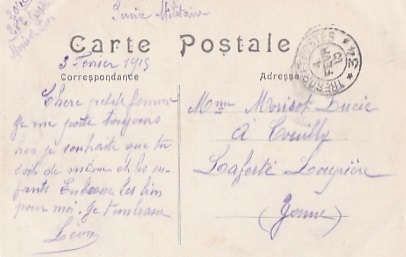 Service Militaire
Carte Postale
Correspondance
Adresse
3 Fevrier 1915
Chere petite femme
je me porte toujours
bien je souhaite que tu
sois de même et les en-
fants Embrasse les bien
pour moi. Je t'embrasse
Mme Morisot Lucie
à Couilly
Laferté Loupière
(Yonne)
TRESOR ET POSTES
* 34 *
4 FEVR
15